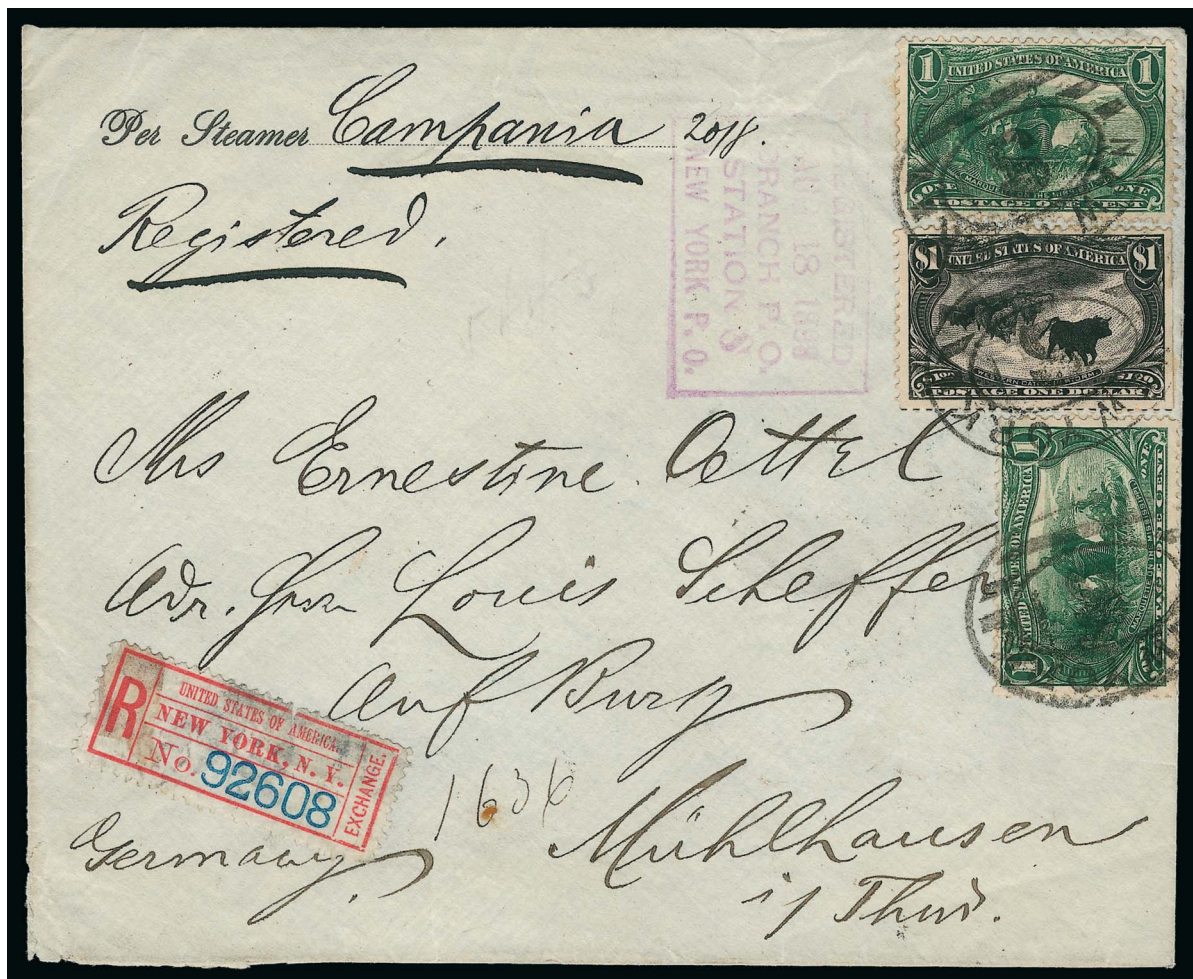 Per Steamer Campania 20/8.
Registered.
REGISTERED
18 1898
BRANCH P. O.
STATION
NEW YORK P. O.
1 UNITED STATES OF AMERICA 1
ONE ONE
POSTAGE ONE CENT
$1 UNITED STATES OF AMERICA $1
POSTAGE ONE DOLLAR
1 UNITED STATES OF AMERICA 1
ONE
POSTAGE ONE CENT
Mrs Ernestine Oettel
Adr. Louis Scheffer
Auf Burg
R
UNITED STATES OF AMERICA.
NEW YORK, N. Y.
No. 92608
EXCHANGE.
1636
Mühlhausen
Germany.
i/ Thür.